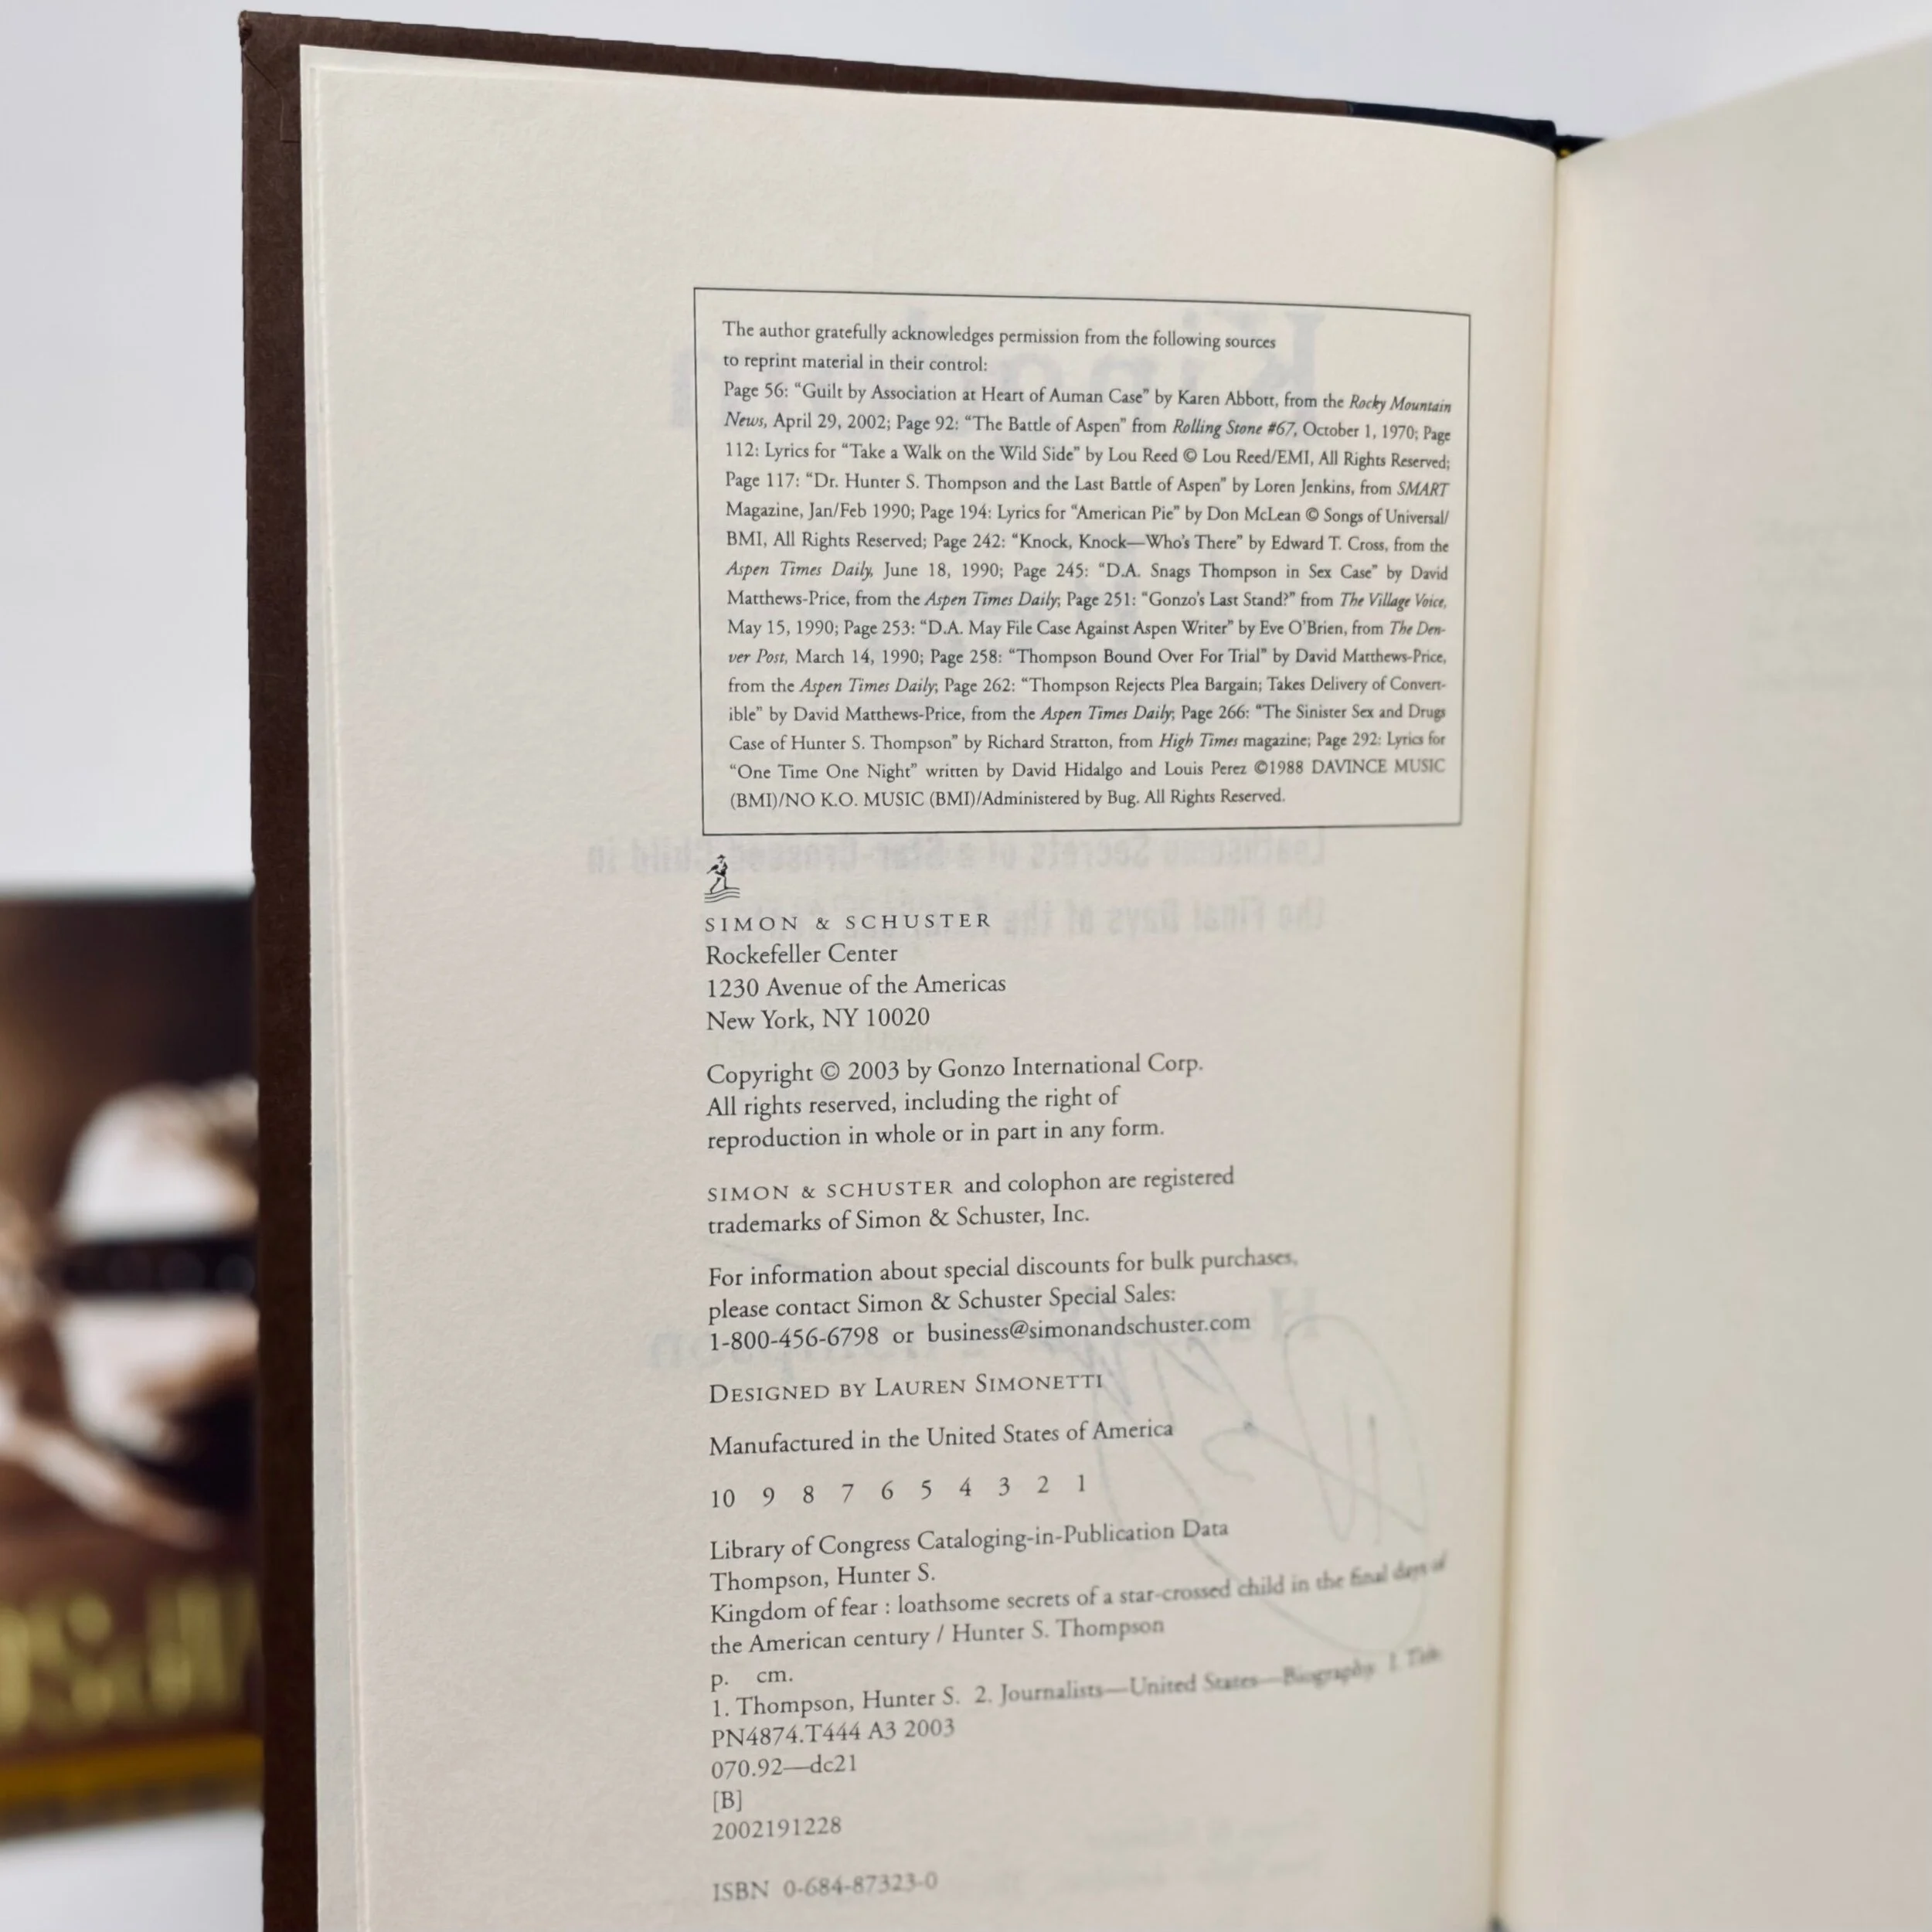 The author gratefully acknowledges permission from the following sources
to reprint material in their control:
Page 56: “Guilt by Association at Heart of Auman Case” by Karen Abbott, from the Rocky Mountain
News, April 29, 2002; Page 92: “The Battle of Aspen” from Rolling Stone #67, October 1, 1970; Page
112: Lyrics for “Take a Walk on the Wild Side” by Lou Reed © Lou Reed/EMI, All Rights Reserved;
Page 117: “Dr. Hunter S. Thompson and the Last Battle of Aspen” by Loren Jenkins, from SMART
Magazine, Jan/Feb 1990; Page 194: Lyrics for “American Pie” by Don McLean © Songs of Universal/
BMI, All Rights Reserved; Page 242: “Knock, Knock—Who’s There” by Edward T. Cross, from the
Aspen Times Daily, June 18, 1990; Page 245: “D.A. Snags Thompson in Sex Case” by David
Matthews-Price, from the Aspen Times Daily; Page 251: “Gonzo’s Last Stand?” from The Village Voice,
May 15, 1990; Page 253: “D.A. May File Case Against Aspen Writer” by Eve O’Brien, from The Den-
ver Post, March 14, 1990; Page 258: “Thompson Bound Over For Trial” by David Matthews-Price,
from the Aspen Times Daily; Page 262: “Thompson Rejects Plea Bargain; Takes Delivery of Convert-
ible” by David Matthews-Price, from the Aspen Times Daily; Page 266: “The Sinister Sex and Drugs
Case of Hunter S. Thompson” by Richard Stratton, from High Times magazine; Page 292: Lyrics for
“One Time One Night” written by David Hidalgo and Louis Perez ©1988 DAVINCE MUSIC
(BMI)/NO K.O. MUSIC (BMI)/Administered by Bug. All Rights Reserved.
SIMON & SCHUSTER
Rockefeller Center
1230 Avenue of the Americas
New York, NY 10020
Copyright © 2003 by Gonzo International Corp.
All rights reserved, including the right of
reproduction in whole or in part in any form.
SIMON & SCHUSTER and colophon are registered
trademarks of Simon & Schuster, Inc.
For information about special discounts for bulk purchases,
please contact Simon & Schuster Special Sales:
1-800-456-6798 or business@simonandschuster.com
DESIGNED BY LAUREN SIMONETTI
Manufactured in the United States of America
10 9 8 7 6 5 4 3 2 1
Library of Congress Cataloging-in-Publication Data
Thompson, Hunter S.
Kingdom of fear : loathsome secrets of a star-crossed child in the final days of
the American century / Hunter S. Thompson
p. cm.
1. Thompson, Hunter S. 2. Journalists—United States—Biography. I. Title.
PN4874.T444 A3 2003
070.92—dc21
[B]
2002191228
ISBN 0-684-87323-0